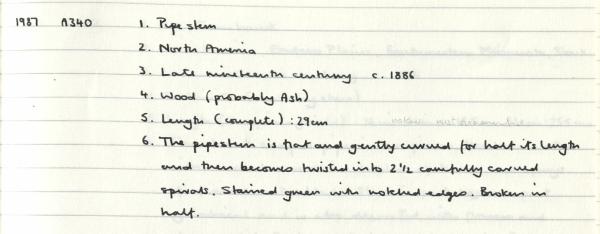 1987 A340 1. Pipe stem
2. North America
3. Late nineteenth century c. 1886
4. Wood (probably Ash)
5. Length (complete) : 29cm
6. The pipestem is flat and gently curved for half its length
and then becomes twisted into 2 1/2 carefully carved
spirals. Stained green with notched edges. Broken in
half.